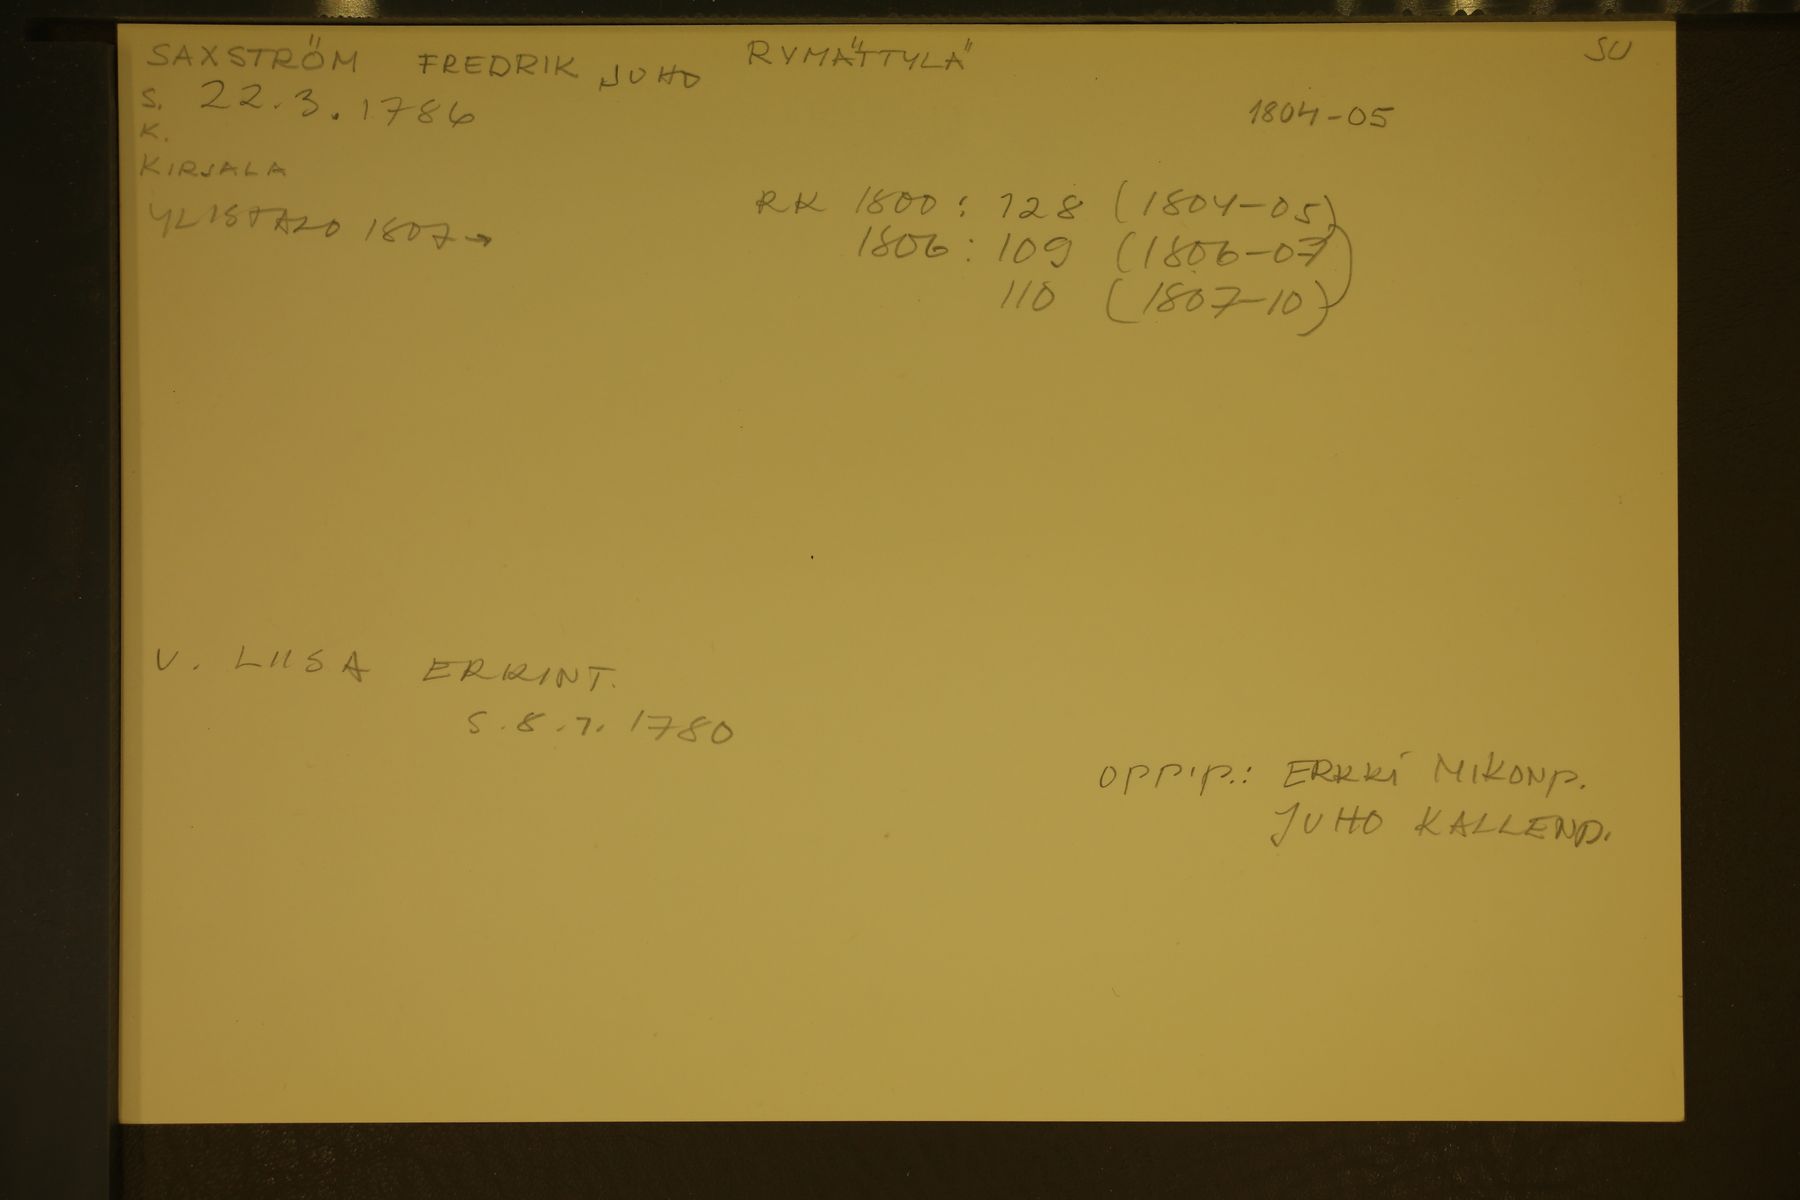 SAXSTRÖM FREDRIK JUHO RYMÄTTYLÄ SU
S. 22.3.1786 1804-05
K.
KIRJALA
YLISTALO 1807→
RK 1800: 128 (1804-05)
1806: 109 (1806-07)
110 (1807-10)
V. LIISA ERKINT.
S. 8.7.1780
OPPIP.: ERKKI MIKONP.
JUHO KALLENP.